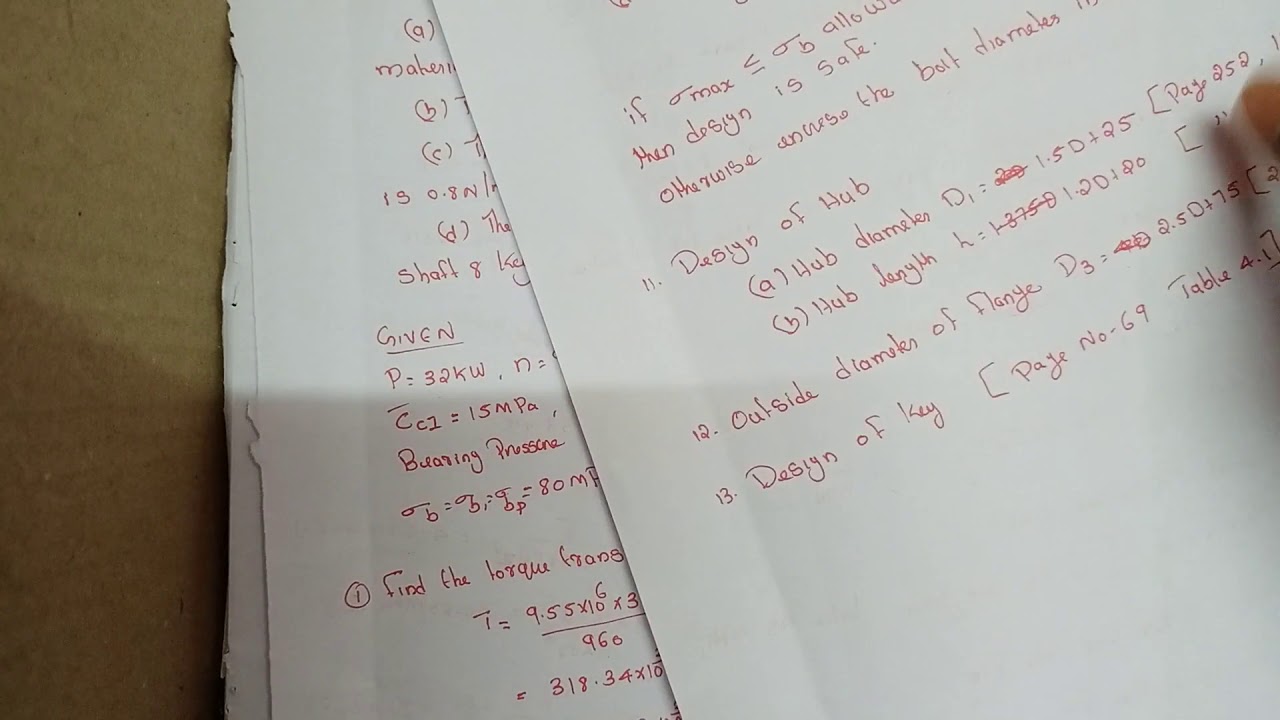 (a)
(b)
(c)
is 0.8N/
(d) The
Shaft & Key
GIVEN
P = 32KW, n =
τCI = 15MPa,
Bearing Pressure
σb = σb1 = σbp = 80 MP
① Find the torque trans
T = 9.55x10⁶ x 3
960
= 318.34x10
if σmax ≤ σb allow
then design is safe.
Otherwise encrese the bolt diameter
11. Design of Hub
(a) Hub diameter D1 = 1.5D+25 [Page 252,
(b) Hub length h = 1.2D+20 [ "
12. Outside diameter of flange D3 = 2.5D+75 [2
13. Design of key [Page No-69 Table 4.1]